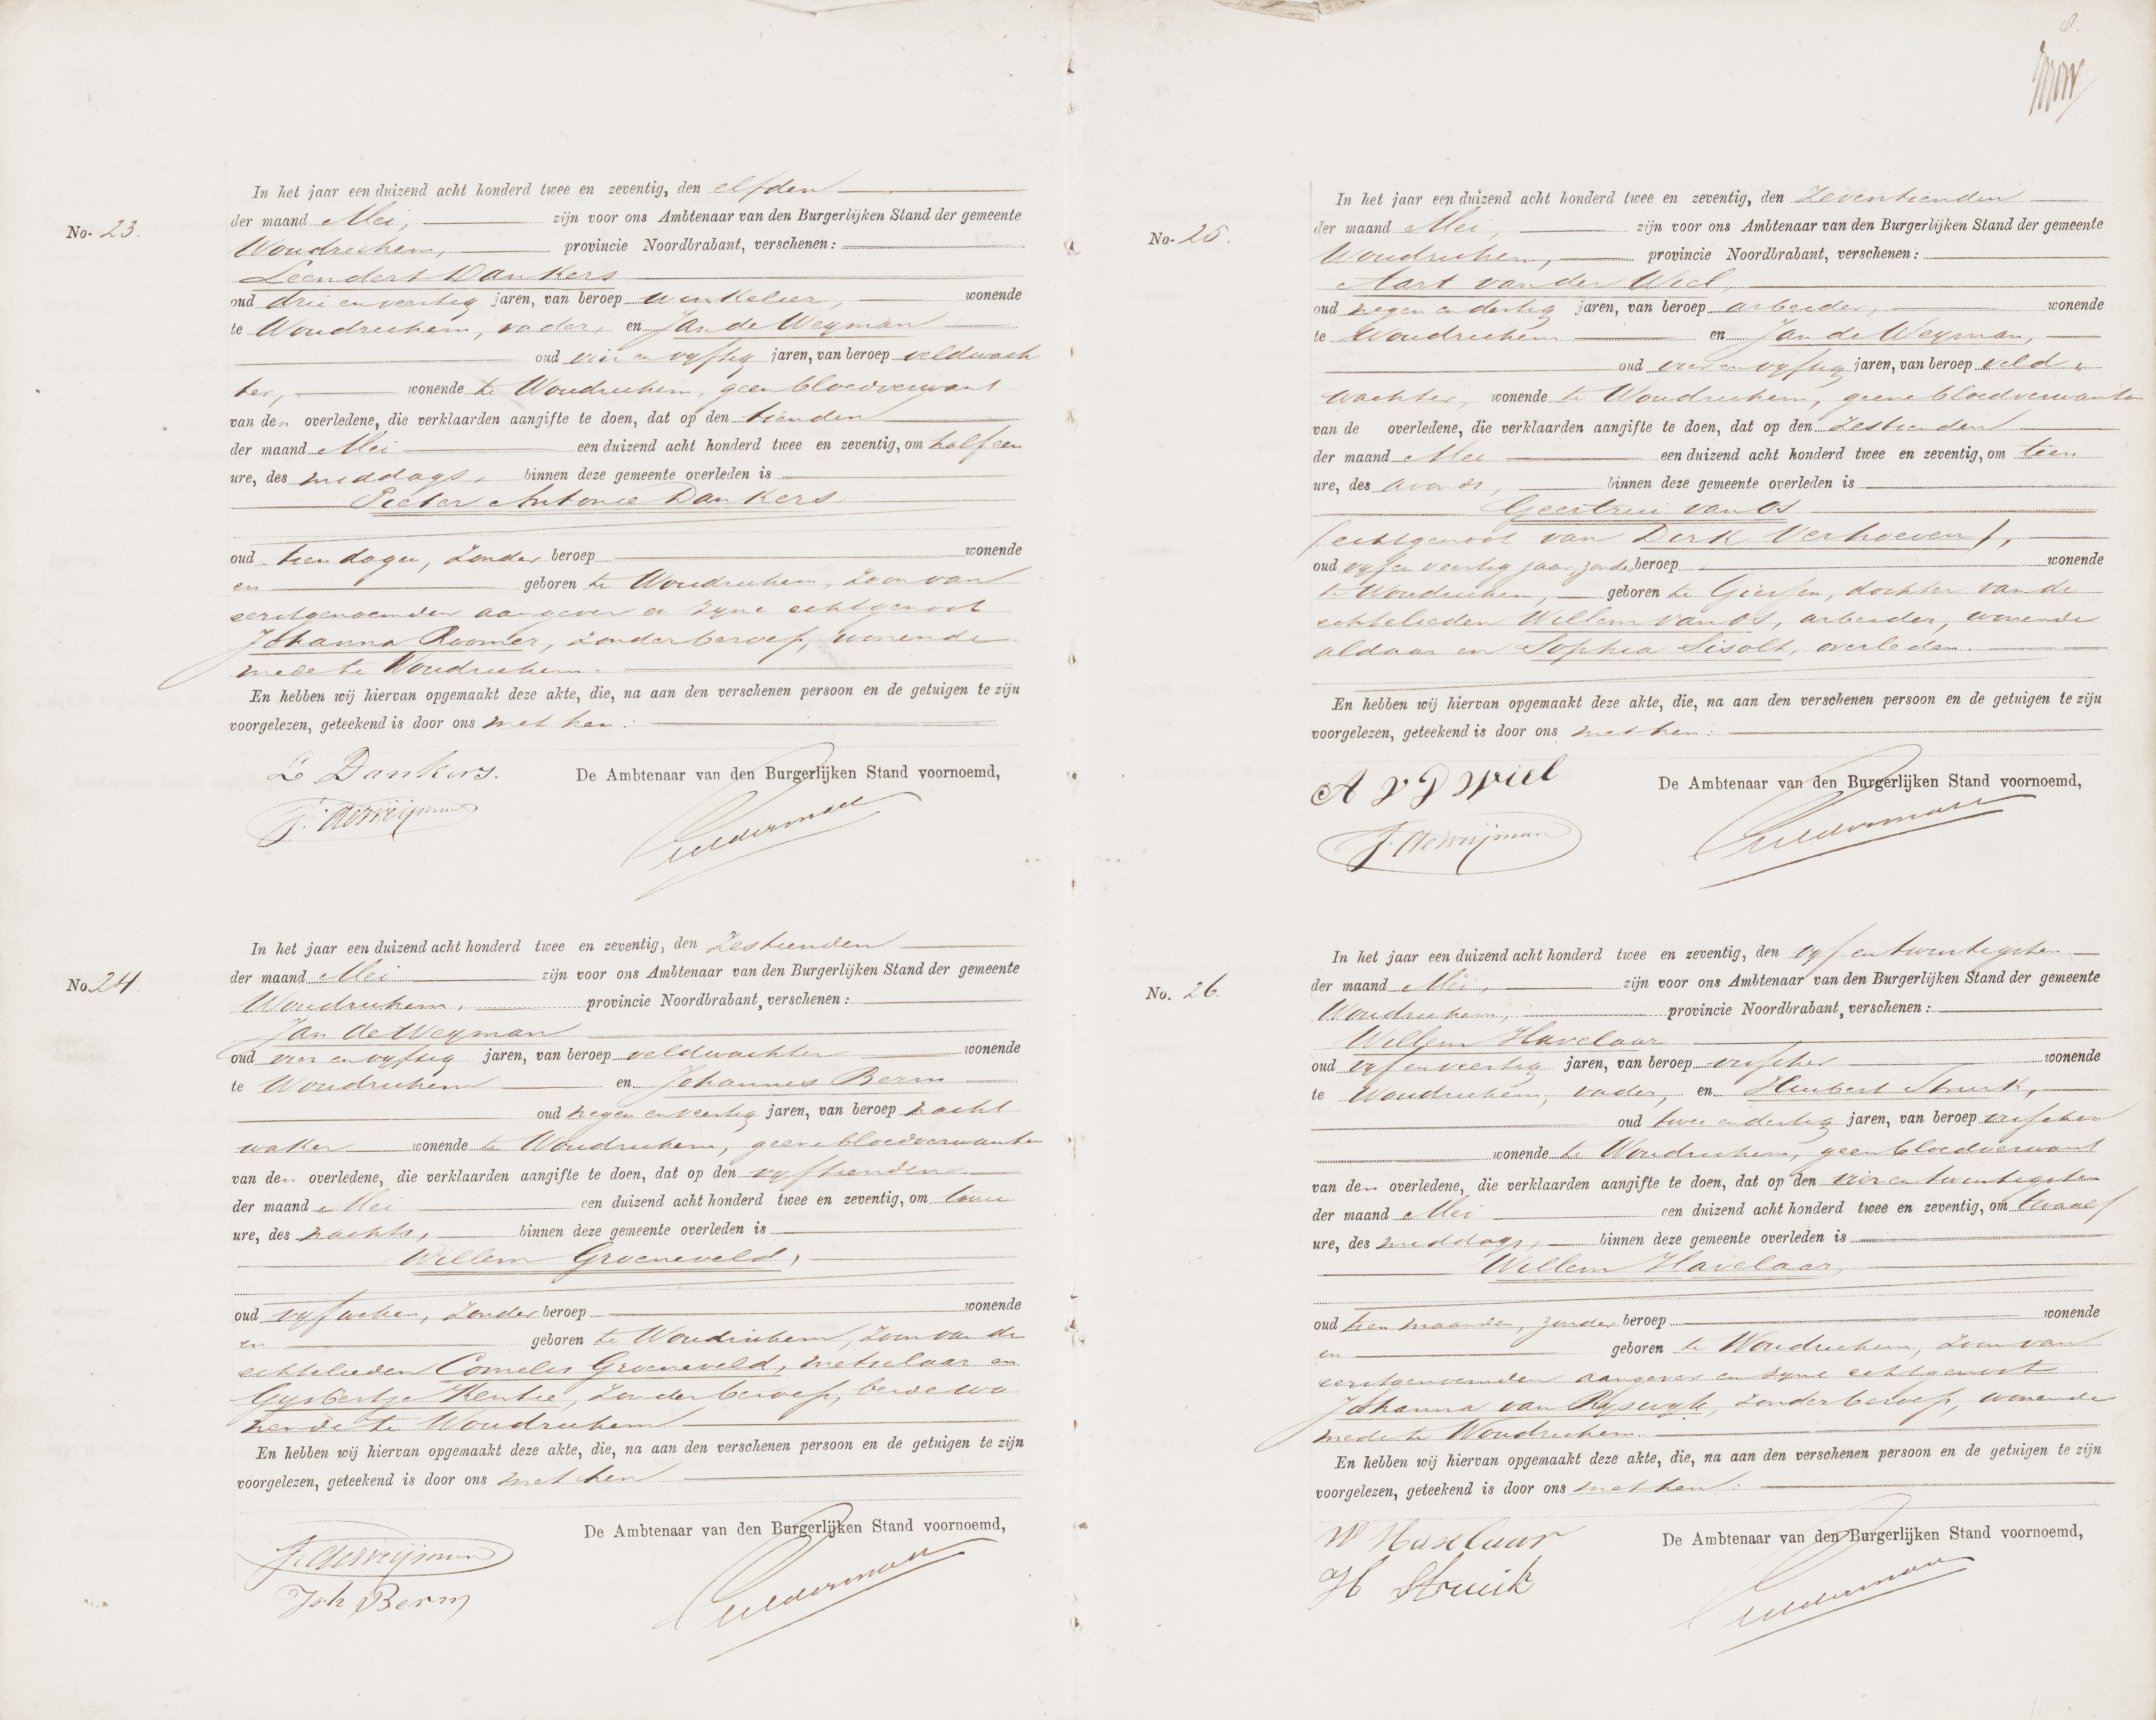 No. 23.
In het jaar een duizend acht honderd twee en zeventig, den elfden
der maand Mei, zijn voor ons Ambtenaar van den Burgerlijken Stand der gemeente
Woudrichem, provincie Noordbrabant, verschenen:
Leendert Dankers
oud drie en veertig jaren, van beroep winkelier, wonende
te Woudrichem, vader, en Jan de Weyman
oud vier en vyftig jaren, van beroep veldwach
ter, wonende te Woudrichem, geen bloedverwant
van den overledene, die verklaarden aangifte te doen, dat op den tienden
der maand Mei een duizend acht honderd twee en zeventig, om half een
ure, des middags, binnen deze gemeente overleden is
Pieter Antonie Dankers
oud tien dagen, zonder beroep wonende
en geboren te Woudrichem, zoon van
eerstgenoemden aangever en zyne echtgenoot
Johanna Roomer, zonder beroep, wonende
mede te Woudrichem.
En hebben wij hiervan opgemaakt deze akte, die, na aan den verschenen persoon en de getuigen te zijn
voorgelezen, geteekend is door ons met hen:
Le Dankers.
De Ambtenaar van den Burgerlijken Stand voornoemd,
J. de Weijman
No. 24.
In het jaar een duizend acht honderd twee en zeventig, den zestienden
der maand Mei zijn voor ons Ambtenaar van den Burgerlijken Stand der gemeente
Woudrichem, provincie Noordbrabant, verschenen:
Jan de Weyman
oud vier en vyftig jaren, van beroep veldwachter wonende
te Woudrichem en Johannes Berm
oud negen en veertig jaren, van beroep nacht
waker wonende te Woudrichem, geene bloedverwanten
van den overledene, die verklaarden aangifte te doen, dat op den vyftienden
der maand Mei een duizend acht honderd twee en zeventig, om
ure, des nachts, binnen deze gemeente overleden is
Willem Groeneveld,
oud vyf weken, zonder beroep wonende
en geboren te Woudrichem, zoon van de
echtelieden Cornelis Groeneveld, metselaar en
Gysbertje Kentie, zonder beroep, beide wo
nende te Woudrichem
En hebben wij hiervan opgemaakt deze akte, die, na aan den verschenen persoon en de getuigen te zijn
voorgelezen, geteekend is door ons met hen
De Ambtenaar van den Burgerlijken Stand voornoemd,
J. de Weijman
Joh Berm
8.
No. 25.
In het jaar een duizend acht honderd twee en zeventig, den zeventienden
der maand Mei, zijn voor ons Ambtenaar van den Burgerlijken Stand der gemeente
Woudrichem, provincie Noordbrabant, verschenen:
Aart van der Wiel,
oud negen en dertig jaren, van beroep arbeider, wonende
te Woudrichem en Jan de Weyman,
oud vier en vyftig jaren, van beroep veld
wachter, wonende te Woudrichem, geene bloedverwanten
van de overledene, die verklaarden aangifte te doen, dat op den zestienden
der maand Mei een duizend acht honderd twee en zeventig, om tien
ure, des avonds, binnen deze gemeente overleden is
Geertrui van Os
(echtgenoot van Derk Verhoeven),
oud vyf en veertig jaar, zonder beroep wonende
te Woudrichem, geboren te Giessen, dochter van de
echtelieden Willem van Os, arbeider, wonende
aldaar en Sophia Sisolt, overleden.
En hebben wij hiervan opgemaakt deze akte, die, na aan den verschenen persoon en de getuigen te zijn
voorgelezen, geteekend is door ons met hen:
A v D Wiel
De Ambtenaar van den Burgerlijken Stand voornoemd,
J. de Weijman
No. 26.
In het jaar een duizend acht honderd twee en zeventig, den vyf en twintigsten
der maand Mei, zijn voor ons Ambtenaar van den Burgerlijken Stand der gemeente
Woudrichem, provincie Noordbrabant, verschenen:
Willem Havelaar
oud vyf en veertig jaren, van beroep visscher wonende
te Woudrichem, vader, en Huibert Struik,
oud twee en dertig jaren, van beroep visscher
wonende te Woudrichem, geen bloedverwant
van den overledene, die verklaarden aangifte te doen, dat op den vier en twintigsten
der maand Mei een duizend acht honderd twee en zeventig, om twaalf
ure, des middags, binnen deze gemeente overleden is
Willem Havelaar,
oud tien maanden, zonder beroep wonende
en geboren te Woudrichem, zoon van
eerstgenoemden aangever en zyne echtgenoot
Johanna van Ryswyk, zonder beroep, wonende
mede te Woudrichem.
En hebben wij hiervan opgemaakt deze akte, die, na aan den verschenen persoon en de getuigen te zijn
voorgelezen, geteekend is door ons met hen:
W Havelaar
De Ambtenaar van den Burgerlijken Stand voornoemd,
H Struik